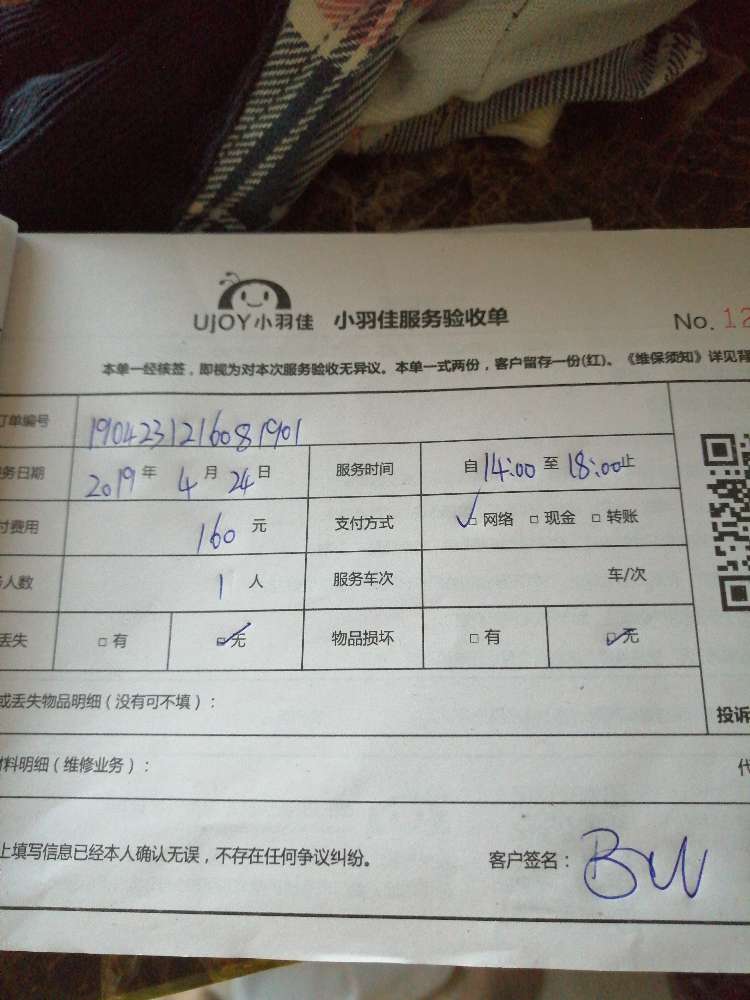 UJOY小羽佳 小羽佳服务验收单 No. 12
本单一经核签，即视为对本次服务验收无异议。本单一式两份，客户留存一份(红)、《维保须知》详见背
订单编号 1904231216081901
务日期 2019年 4月24日 服务时间 自14:00至18:00止
付费用 160元 支付方式 网络 现金 转账
人数 1人 服务车次 车/次
丢失 有 无 物品损坏 有 无
或丢失物品明细（没有可不填）：
投诉
材料明细（维修业务）：
上填写信息已经本人确认无误，不存在任何争议纠纷。 客户签名：BW